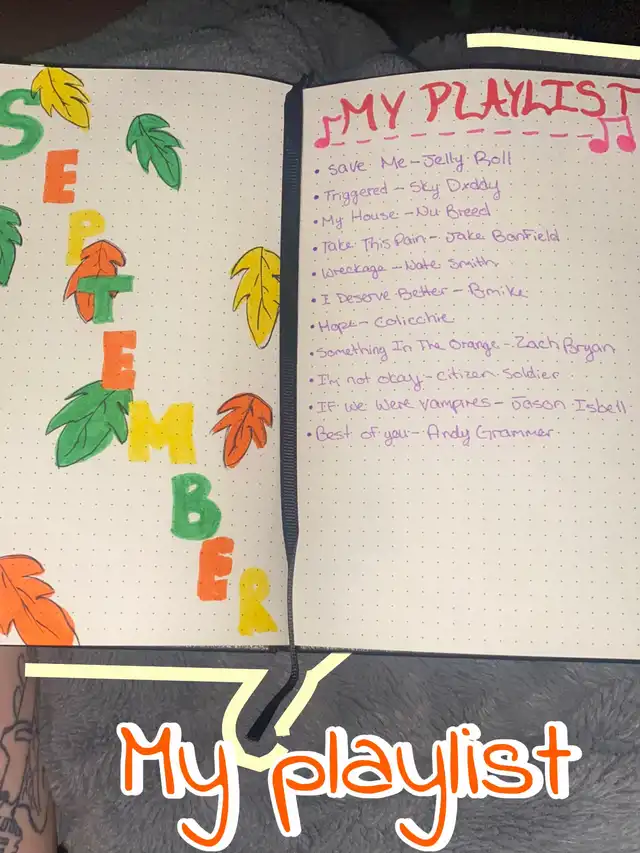 SEPTEMBER
MY PLAYLIST
• Save Me - Jelly Roll
• Triggered - Sky Dxddy
• My House - Nu Breed
• Take This Pain - Jake Banfield
• Wreckage - Nate Smith
• I Deserve Better - Bmike
• Hope - Colicchie
• Something In The Orange - Zach Bryan
• I'm not okay - Citizen Soldier
• If we were vampires - Jason Isbell
• Best of you - Andy Grammer
My playlist